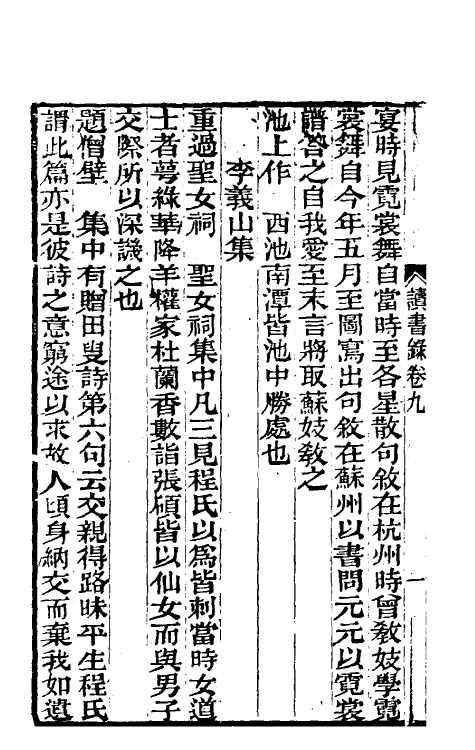 讀書錄卷九
一
宴時見霓裳舞自當時至各星散句敘在杭州時曾教妓學霓
裳舞自今年五月至圖寫出句敘在蘇州以書問元元以霓裳
譜答之自我愛至末言將取蘇妓教之
池上作　西池南潭皆池中勝處也
李義山集
重過聖女祠　聖女祠集中凡三見程氏以爲皆刺當時女道
士者萼綠華降羊權家杜蘭香數詣張碩皆以仙女而與男子
交際所以深譏之也
題僧壁　集中有贈田叟詩第六句云交親得路昧平生程氏
謂此篇亦是彼詩之意窮途以求故人頃身納交而棄我如遺